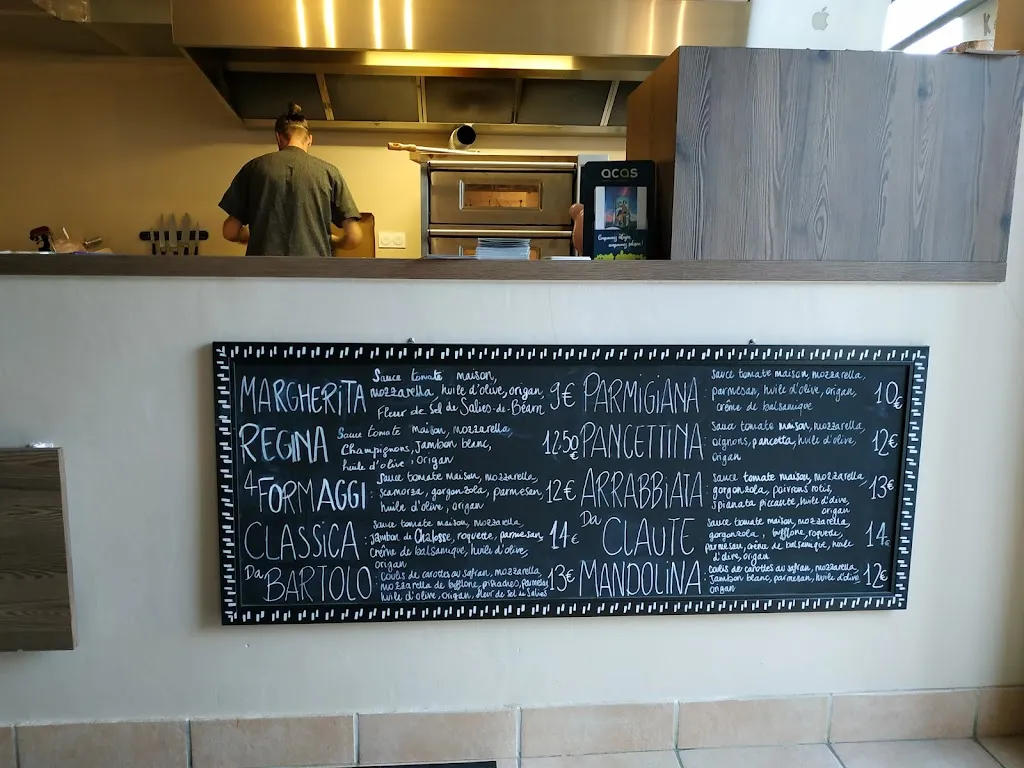 acas
MARGHERITA
Sauce tomate maison,
mozzarella, huile d'olive, origan,
Fleur de Sel de Salies-de-Béarn
9€
REGINA
Sauce tomate maison, mozzarella,
Champignons, Jambon blanc,
huile d'olive, origan
12.50
4 FORMAGGI
Sauce tomate maison, mozzarella,
scamorza, gorgonzola, parmesan,
huile d'olive, origan
12€
CLASSICA
Sauce tomate maison, mozzarella,
jambon de Chalosse, roquette, parmesan,
crème de balsamique, huile d'olive,
origan
14€
Da BARTOLO
: coulis de carottes au safran, mozzarella,
mozzarella de bufflone, pistaches, parmesan
huile d'olive, origan, fleur de sel de Salies
13€
PARMIGIANA
sauce tomate maison, mozzarella,
parmesan, huile d'olive, origan,
crème de balsamique
10€
PANCETTINA
sauce tomate maison, mozzarella,
oignons, pancetta, huile d'olive,
origan
12€
ARRABBIATA
sauce tomate maison, mozzarella
gorgonzola, poivrons rotis,
spianata piccante, huile d'olive
origan
13€
Da CLAUTE
sauce tomate maison, mozzarella,
gorgonzola, bufflone, roquette,
parmesan, crème de balsamique, huile
d'olive, origan
14€
MANDOLINA
coulis de carottes au safran, mozzarella,
Jambon blanc, parmesan, huile d'olive
origan
12€